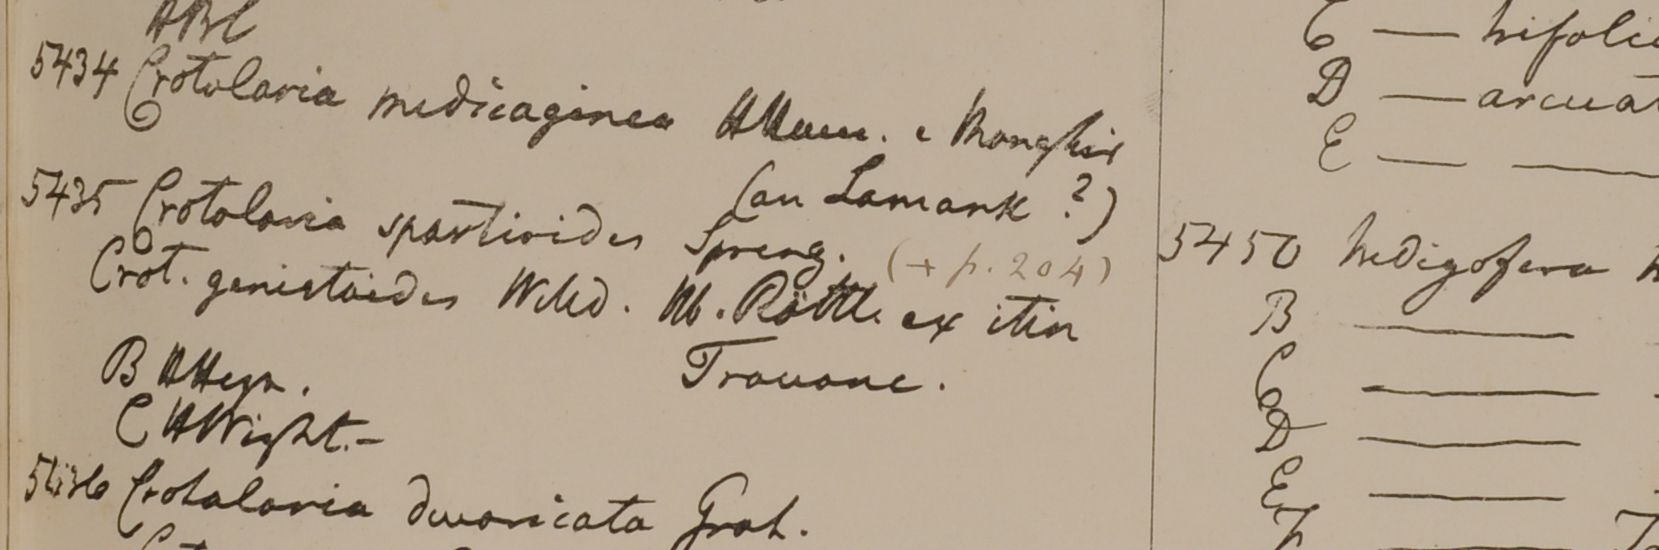 HBC
5434 Crotolaria medicaginea HHam. e Monghir
(an Lamark ?)
5435 Crotolaria spartioides Spreng. (→ p. 204)
Crot. genistoides Willd. Hb. Röttl. ex itin
Travanc.
B HHeyn.
C HWight.—
5436 Crotalaria divaricata Grah.
C — trifoli
D — arcuat
E — —
5450 Indigofera
B —
C —
D —
E —
F —